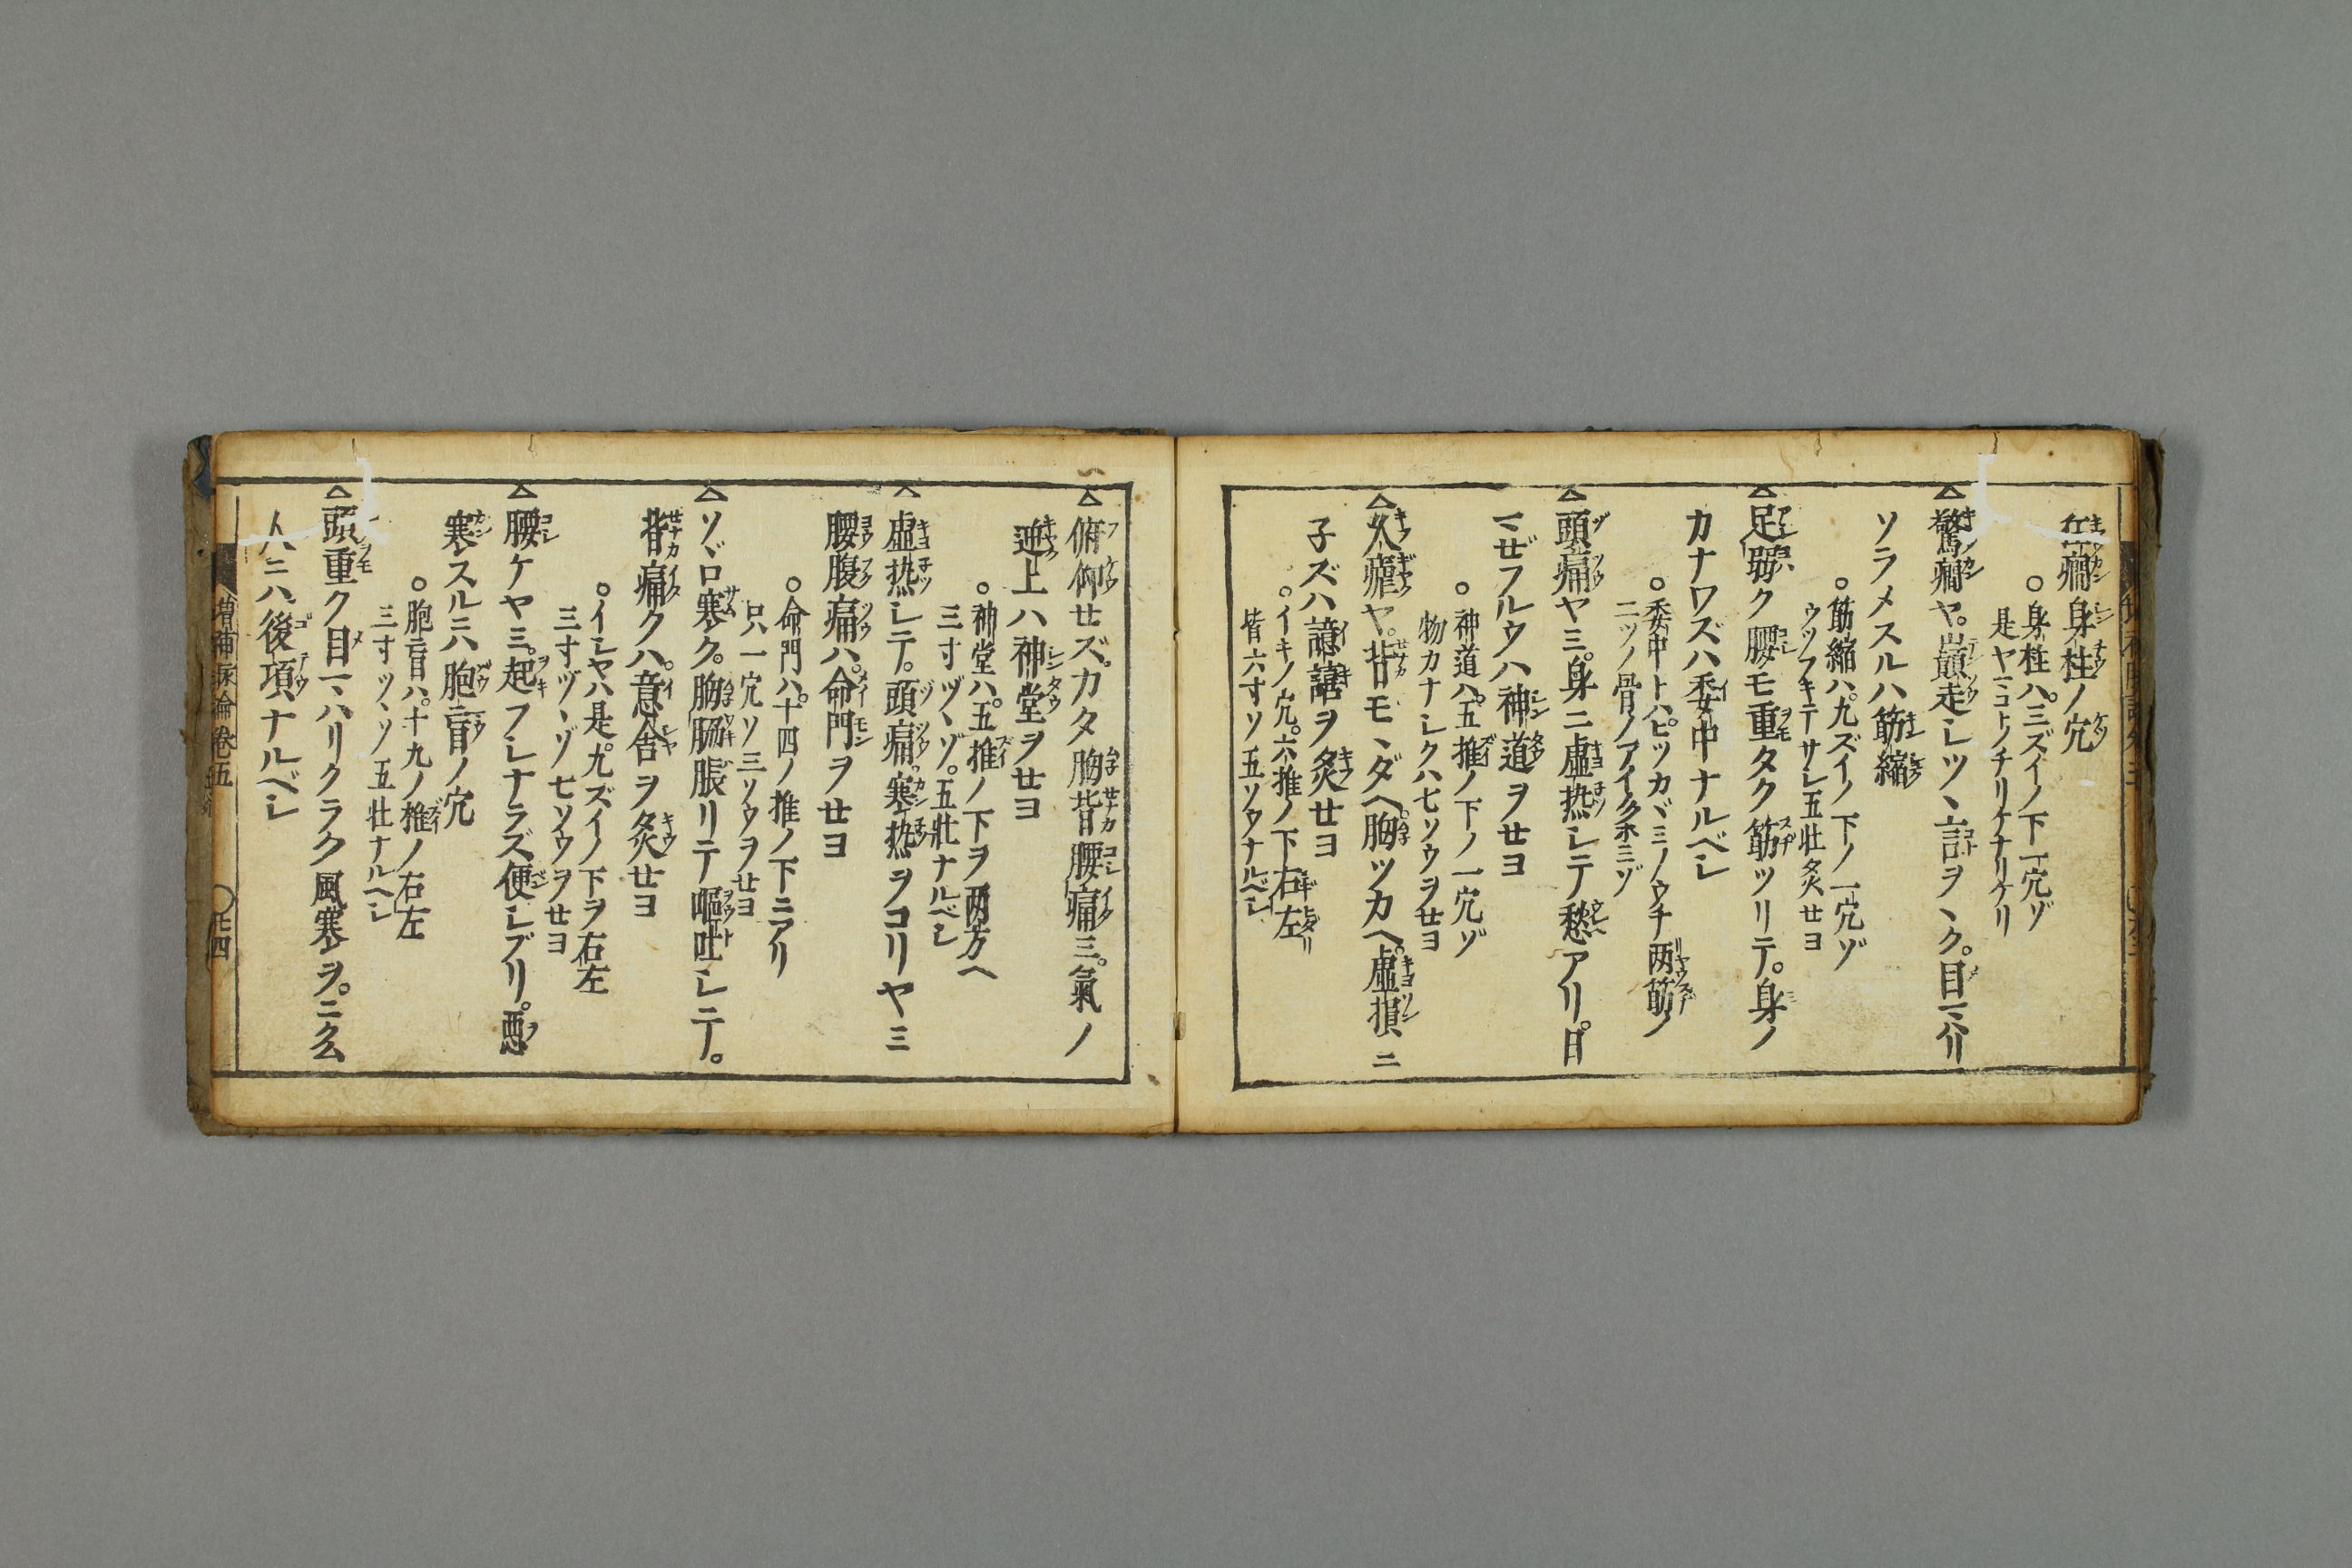 癇身柱ノ穴
○身柱ハ。三ズイノ下一穴ゾ
是ヤマコトノチリケナリケリ
△驚癇ヤ。巓走シツヽ言ヲヽク。目マハリ
ソラメスルハ筋縮
○筋縮ハ。九ズイノ下ノ一穴ゾ
ウツフキテサシ五壮灸セヨ
△足弱ク腰モ重タク筋ツリテ。身ノ
カナワズハ委中ナルベシ
○委中トハ。ヒツカヾミノウチ両筋ノ
二ツノ骨ノアイクホミゾ
△頭痛ヤミ。身ニ虚热シテ愁アリ。日
マゼフルウハ神道ヲセヨ
○神道ハ。五推ノ下ノ一穴ゾ
物カナシクハ七ソウヲセヨ
△久瘧ヤ。背モヽダヘ胸ツカヘ。虚損ニ
子ズハ譩譆ヲ灸セヨ
○イキノ穴。六推ノ下右左
皆六寸ソ五ソウナルベシ
△俯仰セズ。カタ胸背腰痛ミ。氣ノ
逆上ハ神堂ヲセヨ
○神堂ハ。五推ノ下ヲ両方ヘ
三寸ヅヽゾ。五壮ナルベシ
△虚热シテ。頭痛。寒热ヲコリヤミ
腰腹痛ハ。命門ヲセヨ
○命門ハ。十四ノ推ノ下ニアリ
只一穴ソ三ソウヲセヨ
△ソヾロ寒ク。胸脇脹リテ嘔吐シニテ。
背痛クハ。意舎ヲ灸セヨ
○イシヤハ是。九ズイノ下ヲ右左
三寸ヅヽゾ七ソウヲセヨ
△腰ケヤミ。起フシナラズ便シブリ。悪
寒スルニハ胞肓ノ穴
○胞肓ハ。十九ノ推ノ右左
三寸ツヽソ五壮ナルヘシ
△頭重ク目マハリクラク風寒ヲ。ニクム
人ニハ後項ナルベシ
増補脉論巻五